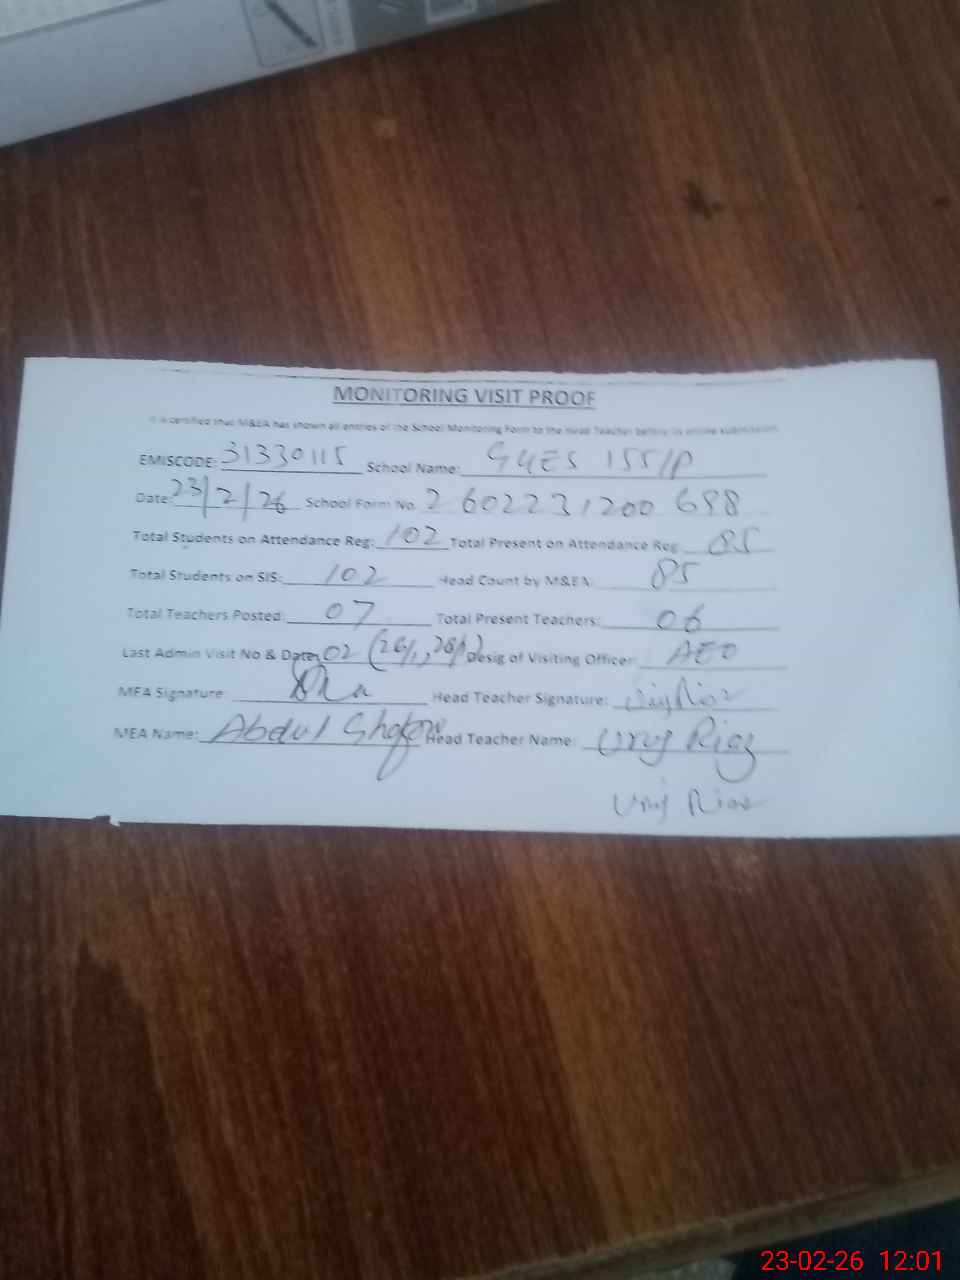 MONITORING VISIT PROOF
It is certified that M&EA has shown all entries of the School Monitoring Form to the Head Teacher before its online submission
EMISCODE: 31330115 School Name: GGES 155/P
Date: 23/2/26 School Form No. 2602231200698
Total Students on Attendance Reg: 102 Total Present on Attendance Reg 85
Total Students on SIS: 102 Head Count by M&EA: 85
Total Teachers Posted: 07 Total Present Teachers: 06
Last Admin Visit No & Date: 02 (26/1, 28/1) Desig of Visiting Officer: AEO
MEA Signature: Head Teacher Signature:
MEA Name: Abdul Shakoor Head Teacher Name: Riaz
Riaz
23-02-26 12:01